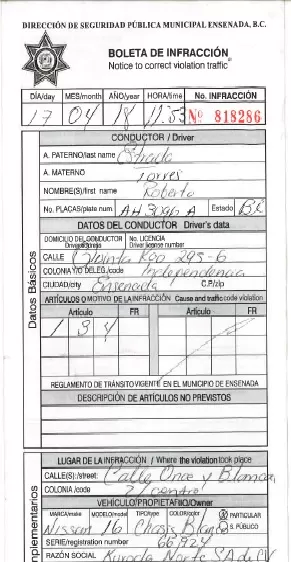 DIRECCIÓN DE SEGURIDAD PÚBLICA MUNICIPAL ENSENADA, B.C.
BOLETA DE INFRACCIÓN
Notice to correct violation traffic
DÍA/day MES/month AÑO/year HORA/time No. INFRACCIÓN
17 04 18 11:53 Nº 818286
CONDUCTOR / Driver
A. PATERNO/last name Estrada
A. MATERNO Torres
NOMBRE(S)/first name Roberto
No. PLACAS/plate num. Estado B.C.
DATOS DEL CONDUCTOR Driver's data
DOMICILIO DEL CONDUCTOR No. LICENCIA
Driver license number
CALLE 295-6
COLONIA Y/O DELEG./code Independencia
CIUDAD/city Ensenada C.P./zip
ARTÍCULOS O MOTIVO DE LA INFRACCIÓN Cause and traffic code violation
Artículo FR Artículo FR
1 3 4
REGLAMENTO DE TRÁNSITO VIGENTE EN EL MUNICIPIO DE ENSENADA
DESCRIPCIÓN DE ARTÍCULOS NO PREVISTOS
Datos Básicos
LUGAR DE LA INFRACCIÓN / Where the violation took place
CALLE(S):/street: Calle Once y Blanca
COLONIA/code centro
VEHÍCULO/PROPIETARIO/Owner
MARCA/make MODELO/model TIPO/type COLOR/color PARTICULAR
Nissan 16 Chasis Blanco S. PÚBLICO
SERIE/registration number 66924
RAZÓN SOCIAL Norte SA de CV
mplementarios